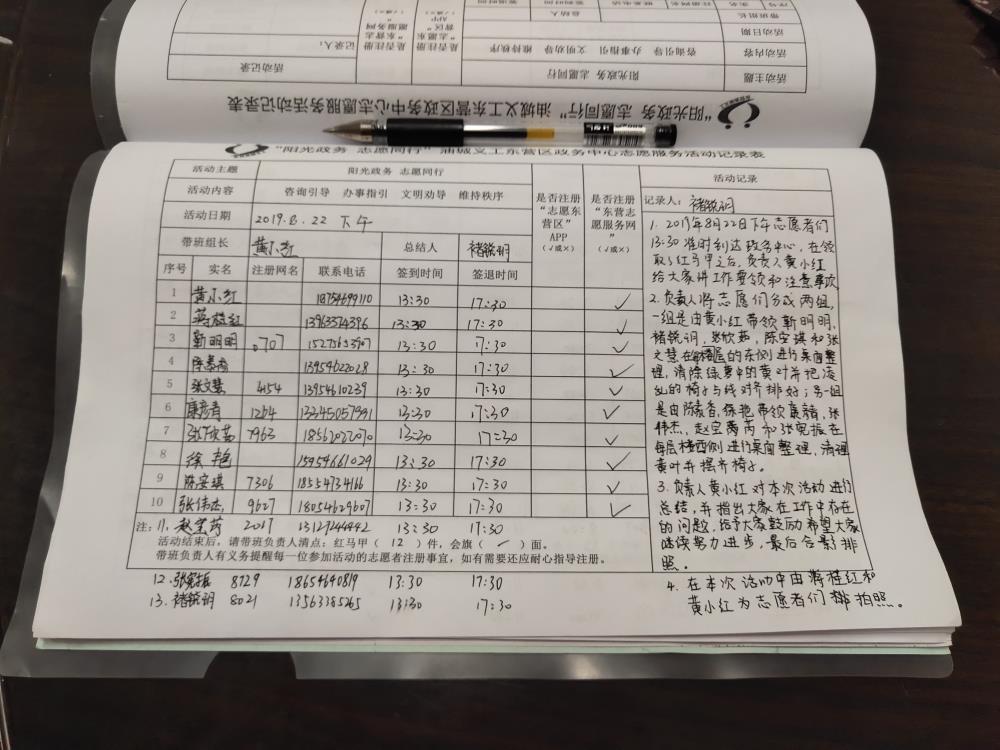 “阳光政务 志愿同行” 油城义工东营区政务中心志愿服务活动记录表
活动主题 阳光政务 志愿同行 活动记录
活动内容 咨询引导 办事指引 文明劝导 维持秩序
记录人:
是否注册“志愿东营区”APP(√或×)
是否注册“东营志愿服务网”(√或×)
活动日期
带班组长 总结人
“阳光政务 志愿同行” 油城义工东营区政务中心志愿服务活动记录表
活动主题 阳光政务 志愿同行
活动内容 咨询引导 办事指引 文明劝导 维持秩序
活动日期 2019.8.22 下午
带班组长 黄小红 总结人 褚锐玥
是否注册“志愿东营区”APP(√或×)
是否注册“东营志愿服务网”(√或×)
序号 实名 注册网名 联系电话 签到时间 签退时间
1 黄小红 18754699110 13:30 17:30 √
2 蒋桂红 13963374396 13:30 17:30 √
3 靳明明 0707 15275653907 13:30 17:30 √
4 陈素香 13954622028 13:30 17:30 √
5 张文慧 4454 13954610239 13:30 17:30 √
6 1264 13:30 17:30 √
7 张欣茹 7963 18562022070 13:30 17:30 √
8 徐艳 15954661029 13:30 17:30 √
9 陈安琪 7306 18554734166 13:30 17:30 √
10 张伟杰 9627 18054629607 13:30 17:30 √
注: 11. 赵宝芮 2017 13127244442 13:30 17:30
活动结束后,请带班负责人清点:红马甲( 12 )件,会旗( ✓ )面。
带班负责人有义务提醒每一位参加活动的志愿者注册事宜,如有需要还应耐心指导注册。
12. 张宪振 8729 18654640819 13:30 17:30
13. 褚锐玥 8021 13563385265 13:30 17:30
活动记录
记录人: 褚锐玥
1. 2019年8月22日下午志愿者们
13:30准时到达政务中心,在领
取了红马甲之后,负责人黄小红
给大家讲工作要领和注意事项
2. 负责人将志愿们分成两组,
一组是由黄小红带领靳明明,
褚锐玥,张欣茹,陈安琪和张
文慧在每楼层的东侧进行桌面整
理,清除绿萝中的黄叶并把凌
乱的椅子与线对齐排好;另一组
是由陈素香,徐艳带领康清,张
伟杰,赵宝芮和张宪振在
每层楼西侧进行桌面整理,清理
黄叶并摆齐椅子。
3. 负责人黄小红对本次活动进行
总结,并指出大家在工作中存在
的问题,给予大家鼓励希望大家
继续努力进步,最后合影排
照。
4. 在本次活动中由蒋桂红和
黄小红为志愿者们拍照。